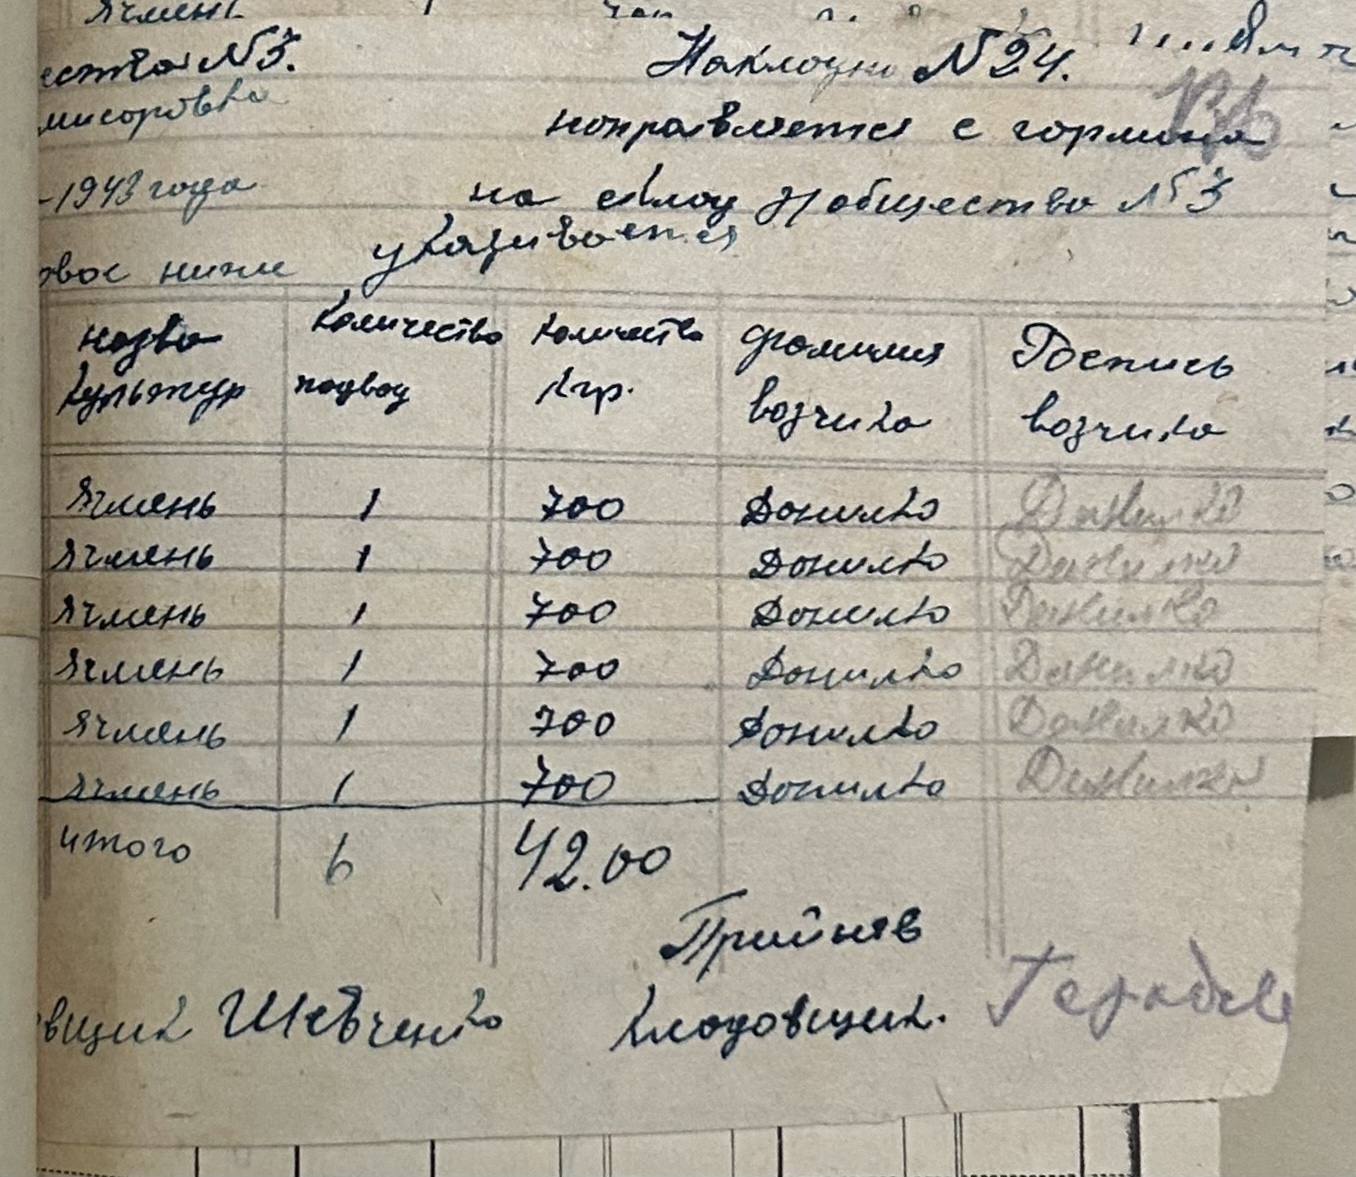 Ячмень
ества №3. Накладна №24.
мисоровка направляется с гормина
-1943 года на склад з/общество №3
указивается
ниже
назва Культур Количество подвод Количество Кгр. фамилия возчика Роспись возчика
Ячмень 1 700 Данилко Данилко
Ячмень 1 700 Данилко Данилко
Ячмень 1 700 Данилко Данилко
Ячмень 1 700 Данилко Данилко
Ячмень 1 700 Данилко Данилко
Ячмень 1 700 Данилко Данилко
итого 6 42.00
Прийняв
вщик Шевченко Кладовщик.